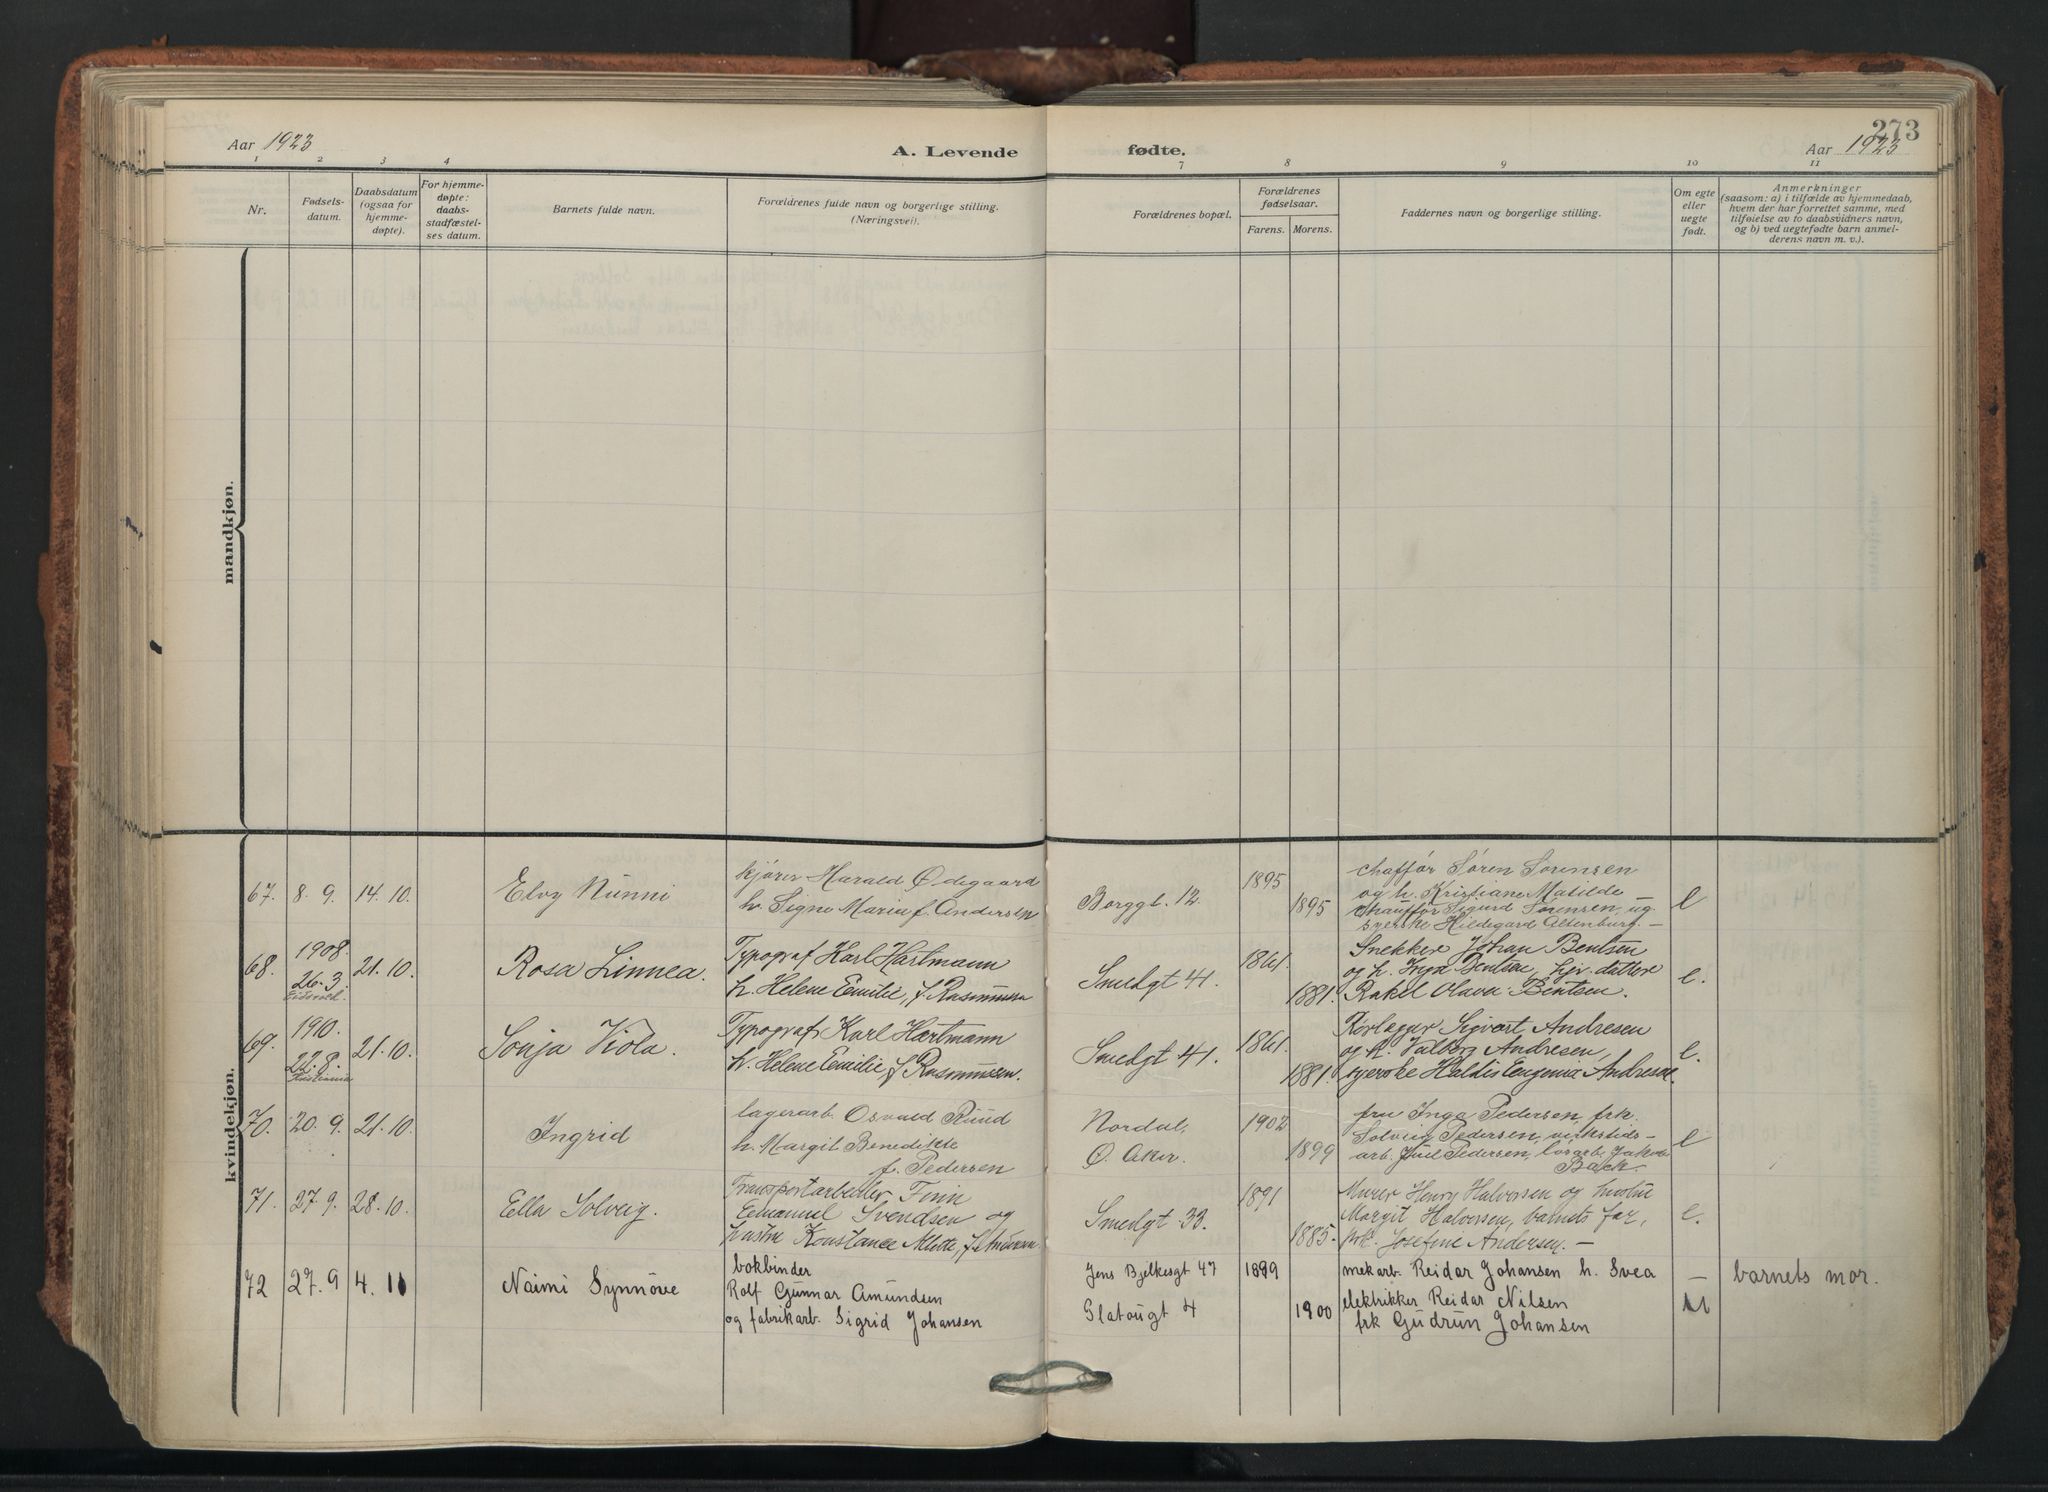 273
Aar 1923
A. Levende
fødte.
Aar 1923
1 2 3 4 7 8 9 10 11
Nr.
Fødsels-
datum.
Daabsdatum
(ogsaa for
hjemme-
døpte).
For hjemme-
døpte:
daabs-
stadfæstel-
ses datum.
Barnets fulde navn.
Forældrenes fulde navn og borgerlige stilling.
(Næringsvei).
Forældrenes bopæl.
Forældrenes
fødselsaar.
Farens. Morens.
Faddernes navn og borgerlige stilling.
Om egte
eller
uegte
født.
Anmerkninger
(saasom: a) i tilfælde av hjemmedaab,
hvem der har forrettet samme, med
tilføielse av to daabsvidners navn,
og b) ved uegtefødte barn anmel-
derens navn m. v.).
mandkjøn.
kvindekjøn.
67. 8. 9. 14. 10. Elvy Nunni
kjører Harald Ødegaard
h. Signe Maria f. Andersen
Borggt. 12.
1895
1895
chaffør Søren Sørensen
og h. Kristiane Matilde
chauffør Sigurd Sørensen, ug.
syerske Hildegard Altenburg. —
e
68. 1908.
26. 3. 21. 10.
Eidsvold.
Rosa Linnea.
Typograf Karl Hartmann
h. Helene Emilie, f Rasmussen
Smedgt 41.
1861.
1881.
Snekker Johan Bentsen
og h. Bentsen, hjv. datter
Rakel Olava Bentsen.
e.
69. 1910.
22. 8. 21. 10.
Kristiania
Sonja Viola.
Typograf Karl Hartmann
h. Helene Emilie, f Rasmussen.
Smedgt 41.
1861.
1881.
Rørlegger Sigvart Andresen
og h. Valborg Andresen,
syerske Haldis Eugenia Andresen.
e.
70. 20. 9. 21. 10. Ingrid
lagerarb. Osvald Ruud
h. Margit Benedikte
f. Pedersen
Nordal,
Ø. Aker.
1902
1899
fru Inga Pedersen, frk.
Solveig Pedersen, verkstids-
arb. Juel Pedersen, løsarb. Jakob
Back.
e
71. 27. 9. 28. 10. Ella Solveig.
Transportarbeider Finn
Emanuel Svendsen og
hustru Konstance Alette, f. Andersen
Smedgt 33.
1891
1885.
Murer Henry Halvorsen og hustru
Margit Halvorsen, barnets far,
frk. Josefine Andersen. —
e.
72 27. 9 4. 11 Naimi Synnöve
bokbinder
Rolf Gunnar Amundsen
og fabrikarb. Sigrid Johansen
Jens Bjelkesgt 47
Slatougt 4
1899
1900
mek arb. Reidar Johansen h. Svea
elektrikker Reidar Nilsen
frk Gudrun Johansen
—
barnets mor.